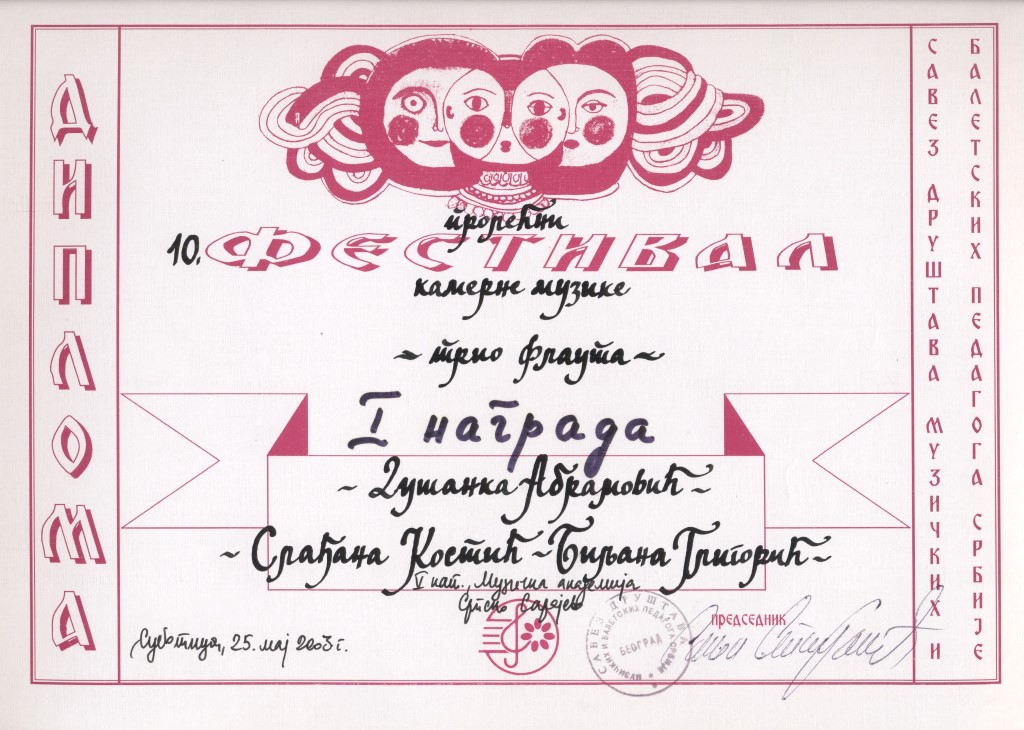 ДИПЛОМА
пролећни
10. ФЕСТИВАЛ
камерне музике
~ трио флаута ~
I награда
~ Душанка Абрамовић ~
~ Слађана Костић ~ Биљана Григорић ~
V кат., Музичка академија
Српско Сарајево
Суботица, 25. мај 2003 г.
САВЕЗ ДРУШТАВА МУЗИЧКИХ И БАЛЕТСКИХ ПЕДАГОГА СРБИЈЕ
БЕОГРАД
ПРЕДСЕДНИК
САВЕЗ ДРУШТАВА МУЗИЧКИХ И
БАЛЕТСКИХ ПЕДАГОГА СРБИЈЕ